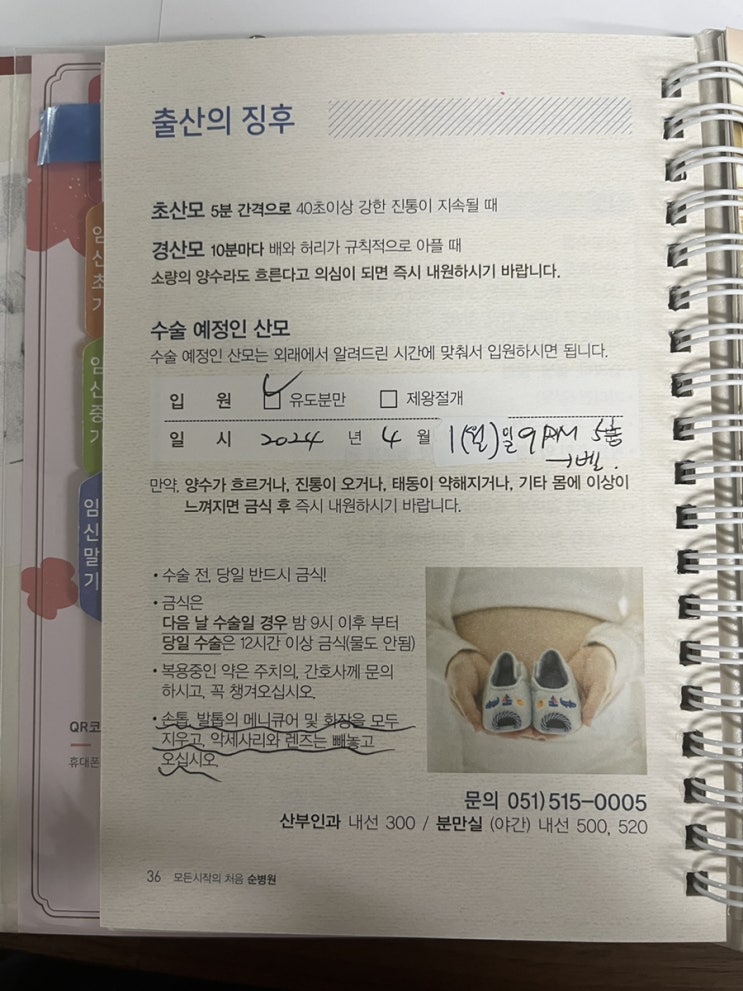 출산의 징후
초산모 5분 간격으로 40초이상 강한 진통이 지속될 때
경산모 10분마다 배와 허리가 규칙적으로 아플 때
소량의 양수라도 흐른다고 의심이 되면 즉시 내원하시기 바랍니다.
수술 예정인 산모
수술 예정인 산모는 외래에서 알려드린 시간에 맞춰서 입원하시면 됩니다.
입 원 ☑ 유도분만 ☐ 제왕절개
일 시 2024 년 4 월 1(월)일 9 AM 5층
→벨.
만약, 양수가 흐르거나, 진통이 오거나, 태동이 약해지거나, 기타 몸에 이상이
느껴지면 금식 후 즉시 내원하시기 바랍니다.
• 수술 전, 당일 반드시 금식!
• 금식은
다음 날 수술일 경우 밤 9시 이후 부터
당일 수술은 12시간 이상 금식(물도 안됨)
• 복용중인 약은 주치의, 간호사께 문의
하시고, 꼭 챙겨오십시오.
• 손톱, 발톱의 메니큐어 및 화장을 모두
지우고, 악세사리와 렌즈는 빼놓고
오십시오.
문의 051)515-0005
산부인과 내선 300 / 분만실 (야간) 내선 500, 520
36 모든시작의 처음 순병원
임신초기
임신중기
임신말기
QR코
휴대폰